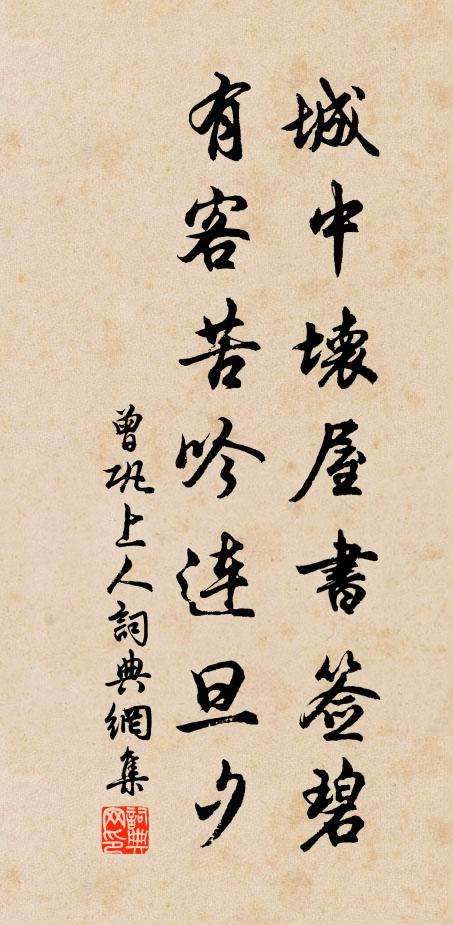 城中壞屋書签碧
有客苦吟連旦夕
曾巩上人詞典網集
詞典网印